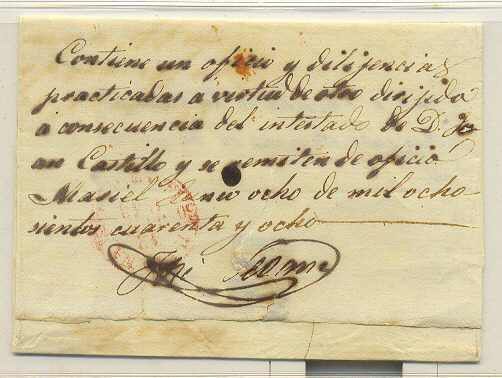 Contiene un oficio y diligencias
practicadas a virtud de otro dirijido
a consecuencia del intestado de D. Jo
an Castillo y se remiten de oficio
Masiel Junio ocho de mil ocho
sientos cuarenta y ocho
José